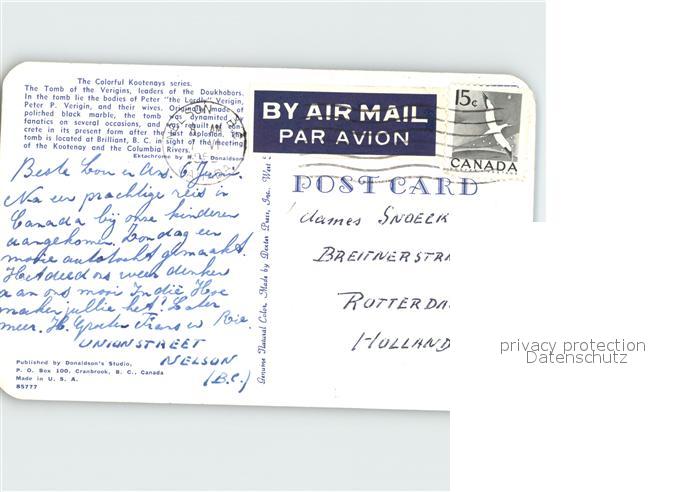 The Colorful Kootenays series.
The Tomb of the Verigins, leaders of the Doukhobors.
In the tomb lie the bodies of Peter "the Lordly" Verigin,
Peter P. Verigin, and their wives. Originally made of
polished black marble, the tomb was dynamited by
fanatics on several occasions, and was rebuilt in con-
crete in its present form after the last explosion. The
tomb is located at Brilliant, B. C. in sight of the meeting
of the Kootenay and the Columbia Rivers.
Ektachrome by Donaldson
Beste Lou en Ans. 6 Juni.
Na een prachtige reis in
Canada bij onze kinderen
aangekomen. Zondag een
mooie autotocht gemaakt.
Het deed ons weer denken
aan ons mooi Indië. Hoe
maken jullie het? Later
meer. H. Groeten Frans en Rie.
UNIONSTREET
NELSON
(B.C.)
Published by Donaldson's Studio,
P. O. Box 100, Cranbrook, B. C., Canada
Made in U. S. A.
85777
Genuine Natural Color. Made by Dexter Press, Inc., West
BY AIR MAIL
PAR AVION
15c
CANADA
POST CARD
SNOECK
BREITNERSTRA
ROTTERDA
HOLLAND
privacy protection
Datenschutz